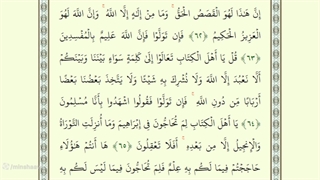 إِنَّ هَذَا لَهُوَ الْقَصَصُ الْحَقُّ وَمَا مِنْ إِلَهٍ إِلَّا اللَّهُ وَإِنَّ اللَّهَ لَهُوَ
الْعَزِيزُ الْحَكِيمُ ﴿٦٢﴾ فَإِن تَوَلَّوْا فَإِنَّ اللَّهَ عَلِيمٌ بِالْمُفْسِدِينَ
﴿٦٣﴾ قُلْ يَا أَهْلَ الْكِتَابِ تَعَالَوْا إِلَى كَلِمَةٍ سَوَاءٍ بَيْنَنَا وَبَيْنَكُمْ
أَلَّا نَعْبُدَ إِلَّا اللَّهَ وَلَا نُشْرِكَ بِهِ شَيْئًا وَلَا يَتَّخِذَ بَعْضُنَا بَعْضًا
أَرْبَابًا مِّن دُونِ اللَّهِ فَإِن تَوَلَّوْا فَقُولُوا اشْهَدُوا بِأَنَّا مُسْلِمُونَ
﴿٦٤﴾ يَا أَهْلَ الْكِتَابِ لِمَ تُحَاجُّونَ فِي إِبْرَاهِيمَ وَمَا أُنزِلَتِ التَّوْرَاةُ
وَالْإِنجِيلُ إِلَّا مِن بَعْدِهِ أَفَلَا تَعْقِلُونَ ﴿٦٥﴾ هَا أَنتُمْ هَؤُلَاءِ
حَاجَجْتُمْ فِيمَا لَكُم بِهِ عِلْمٌ فَلِمَ تُحَاجُّونَ فِيمَا لَيْسَ لَكُم بِهِ